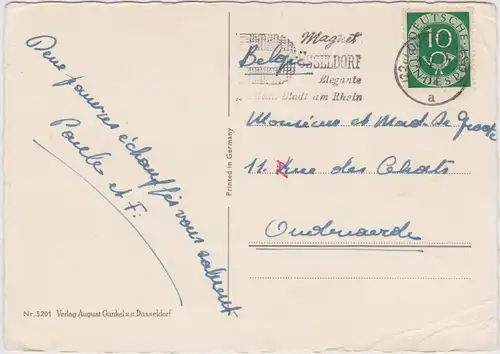 Deux pauvres échauffés vous saluent
Paule et F.
Nr. 5201 Verlag August Gunkel u.d. Düsseldorf
Printed in Germany
Magnet
DÜSSELDORF
Elegante
Stadt am Rhein
Belgie
DEUTSCHE
10
BUNDESPOST
a
Monsieur et Mad. De Groote
11. Rue des Chats
Oudenaerde